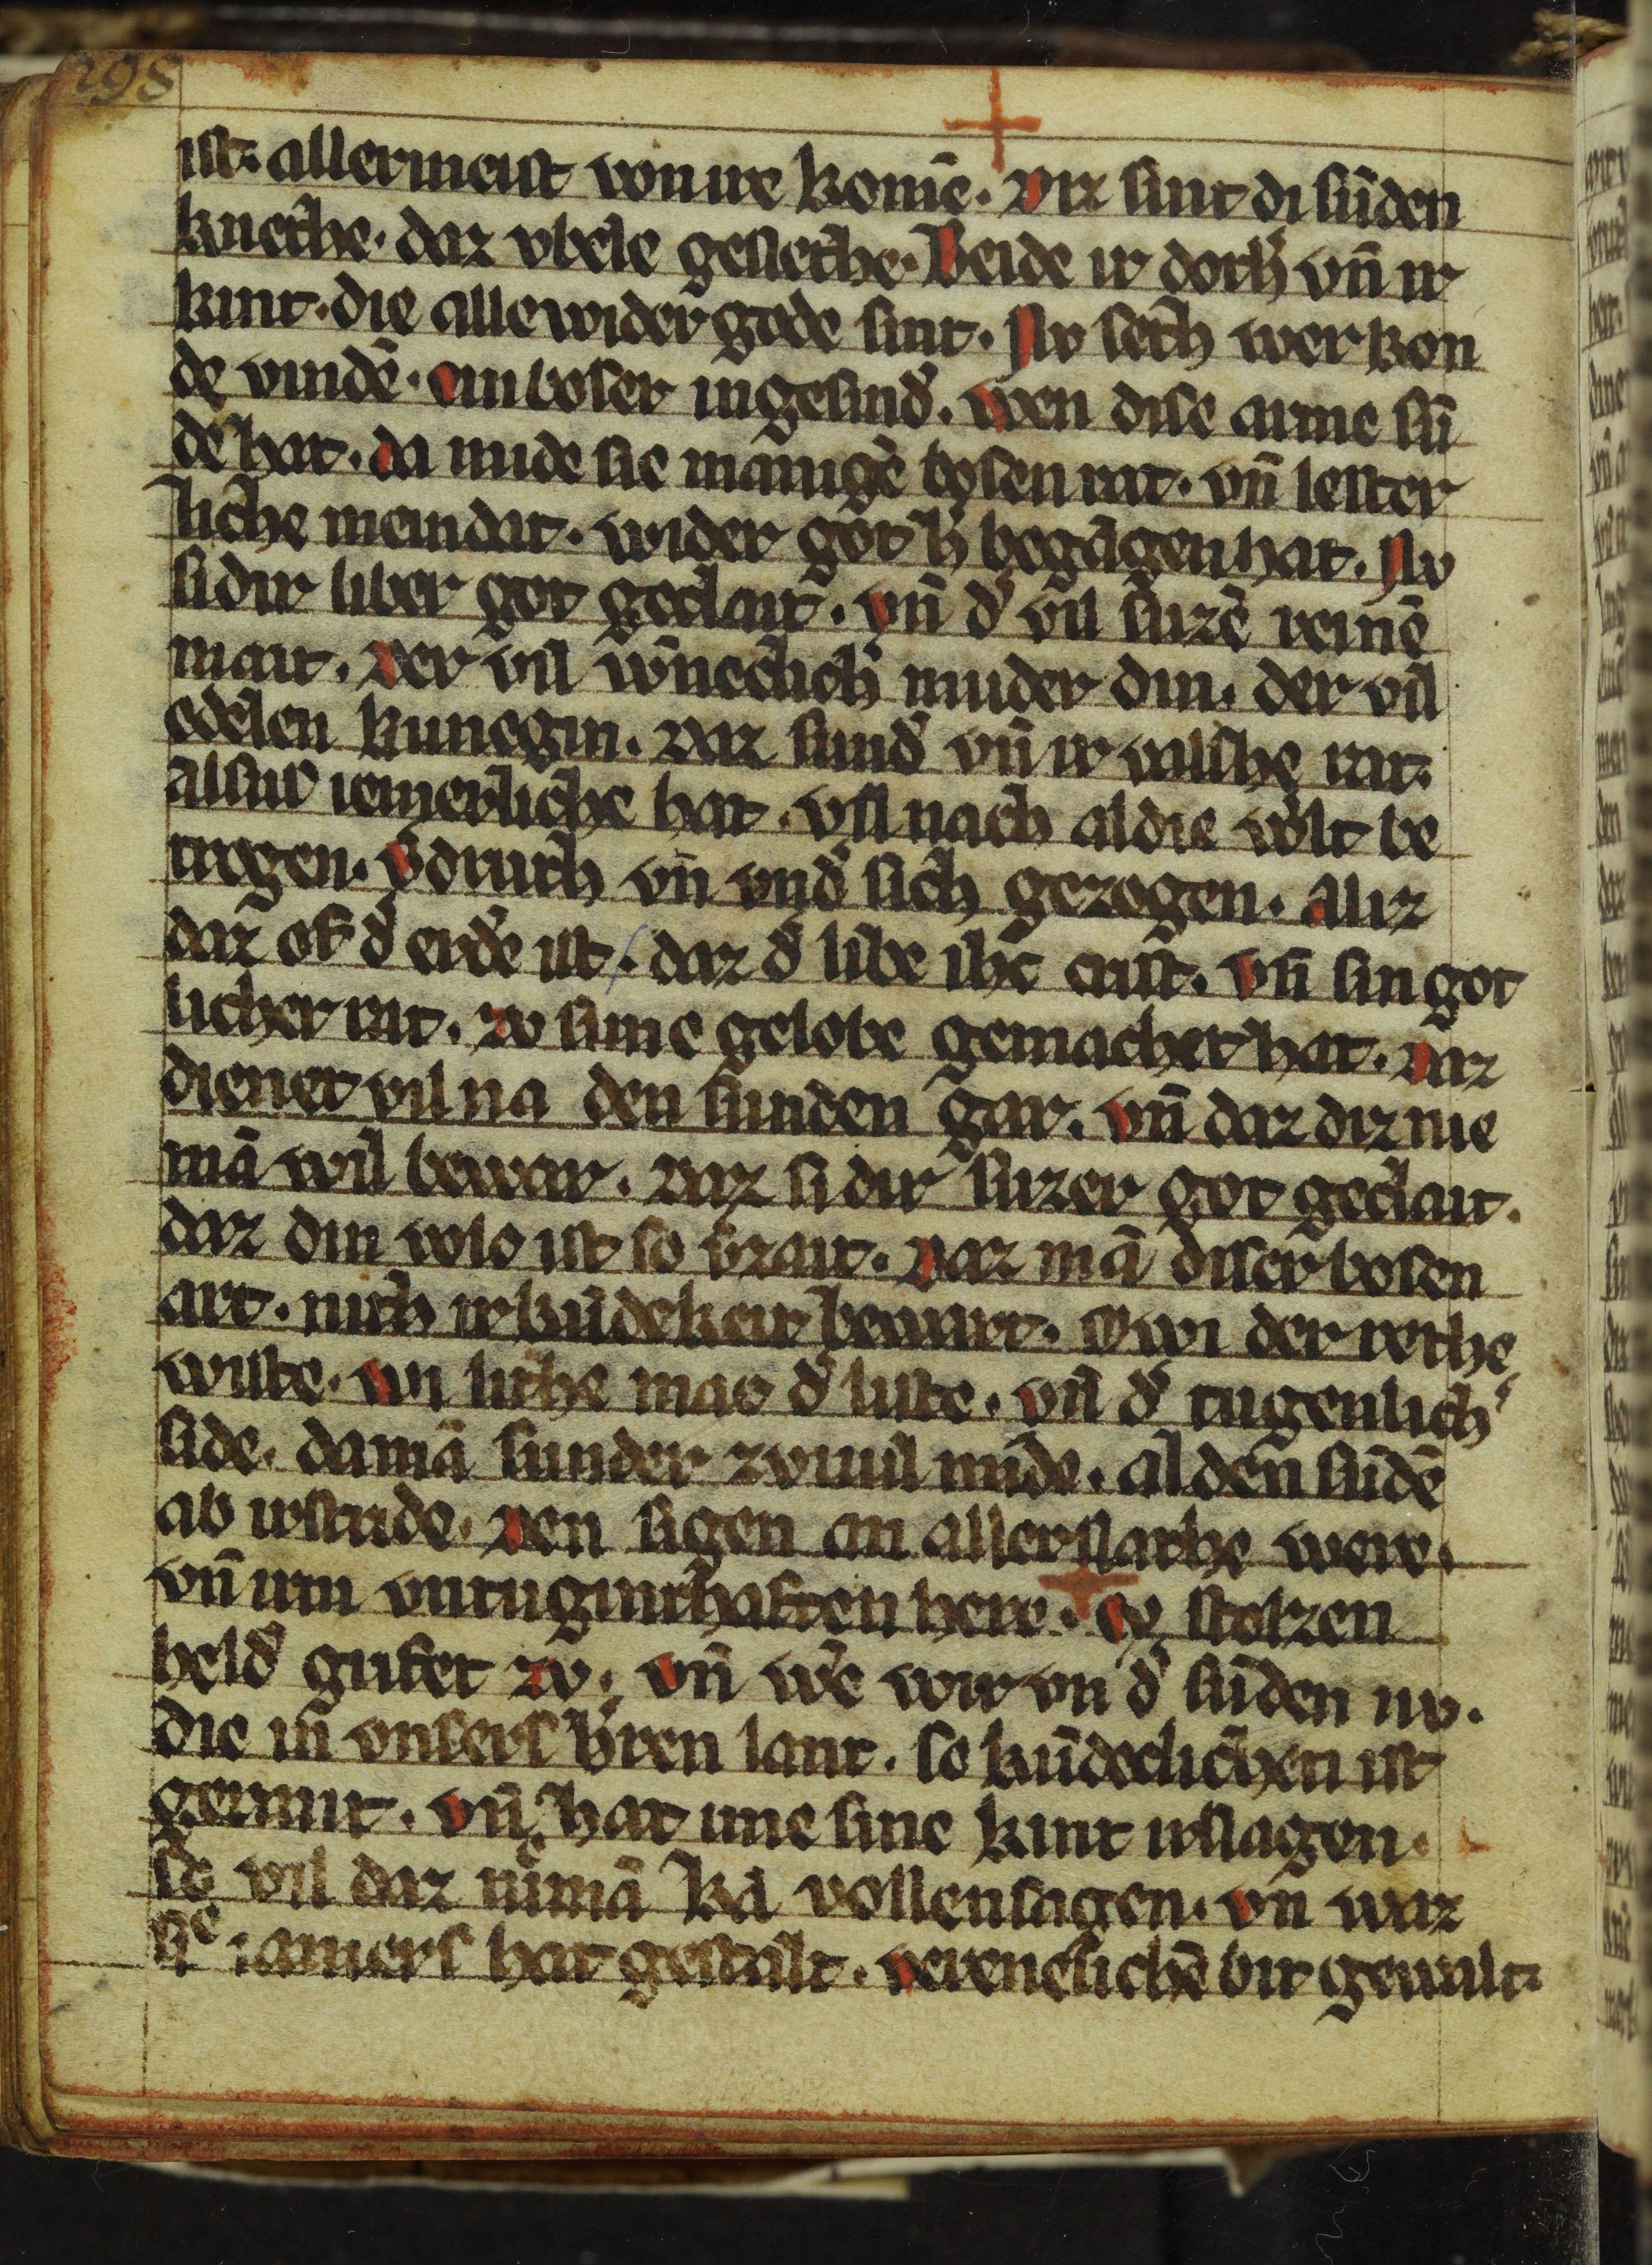 298
ist. allermeist von ire komē. Diz sint di sūden
knethe. daz vbele geslethe. Beide ir dorh vn̄ ir
kint. die alle wider gode sint. Nv seth wer kon
de vindē. ein boser ingesind̾. wen dise arme sū
de hat. da mide sie mānigē bosen rat. vn̄ lester
liche meindat. wider got h̾ begāgen hat. Nv
si dir liber got geclait. vn̄ d̾ vil suzē reinē
mait. Der vil wn̄eclich̾ muder din. der vil
edelen kunegin. Daz sund̾ vn̄ ir valshe rat.
alsus iemerliche hat. vil nach al die w̾lt be
trogen. v̾druth vn̄ vnd̾ sich gezogen. Aliz
daz of d̾ erde ist. daz d̾ libe ihc̄ crist. vn̄ sin got
licher rat. zv sime gelobe gemachet hat. Daz
dienet vil na den sunden gar. vn̄ daz diz nie
mā wil bewar. Daz si dir suzer got geclait.
daz din volc ist so v̾zait. Daz mā diser bosen
art. nith ir kūdekeit bewart. Owi der rethe
wiste. wi lithe mac d̾ liste. vn̄ d̾ tugenlich̾
side. da mā sunder zwiuil mide. al den sūdē
ab irstride. Den sigen an allerslathe were.
vn̄ irm vntuginthaften here. Ey stolzen
held̾ grifet zv. vn̄ w̾e wir vn d̾ sūden nv.
die in vnsers h̾ren lant. so kūdeclichen ist
gerant. vn̄ hat ime sine kint irslagen.
so vil daz nimā kā vollensagen. vn̄ waz
sie iamers hat gestalt. werenclichē bit gewalt.